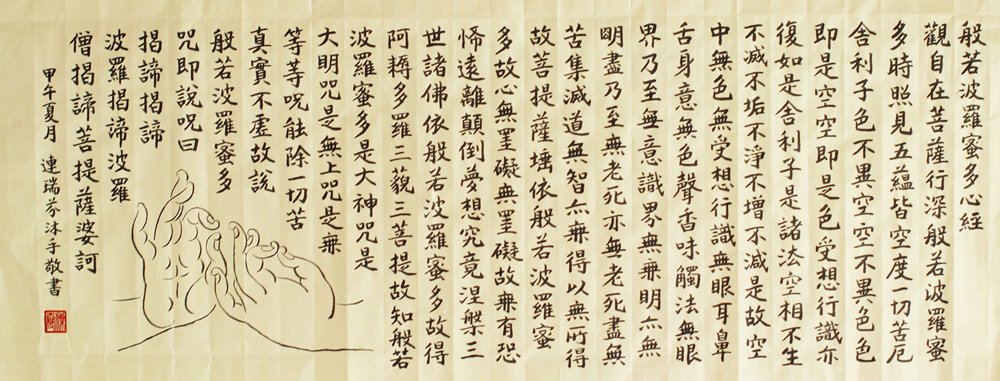 般若波羅蜜多心經
觀自在菩薩行深般若波羅蜜
多時照見五蘊皆空度一切苦厄
舍利子色不異空空不異色色
即是空空即是色受想行識亦
復如是舍利子是諸法空相不生
不滅不垢不淨不增不減是故空
中無色無受想行識無眼耳鼻
舌身意無色聲香味觸法無眼
界乃至無意識界無無明亦無
明盡乃至無老死亦無老死盡無
苦集滅道無智亦無得以無所得
故菩提薩埵依般若波羅蜜
多故心無罣礙無罣礙故無有恐
怖遠離顛倒夢想究竟涅槃三
世諸佛依般若波羅蜜多故得
阿耨多羅三藐三菩提故知般若
波羅蜜多是大神咒是
大明咒是無上咒是無
等等呪能除一切苦
真實不虛故說
般若波羅蜜多
咒即說咒曰
揭諦揭諦
波羅揭諦波羅
僧揭諦菩提薩婆訶
甲午夏月 連瑞芬沐手敬書